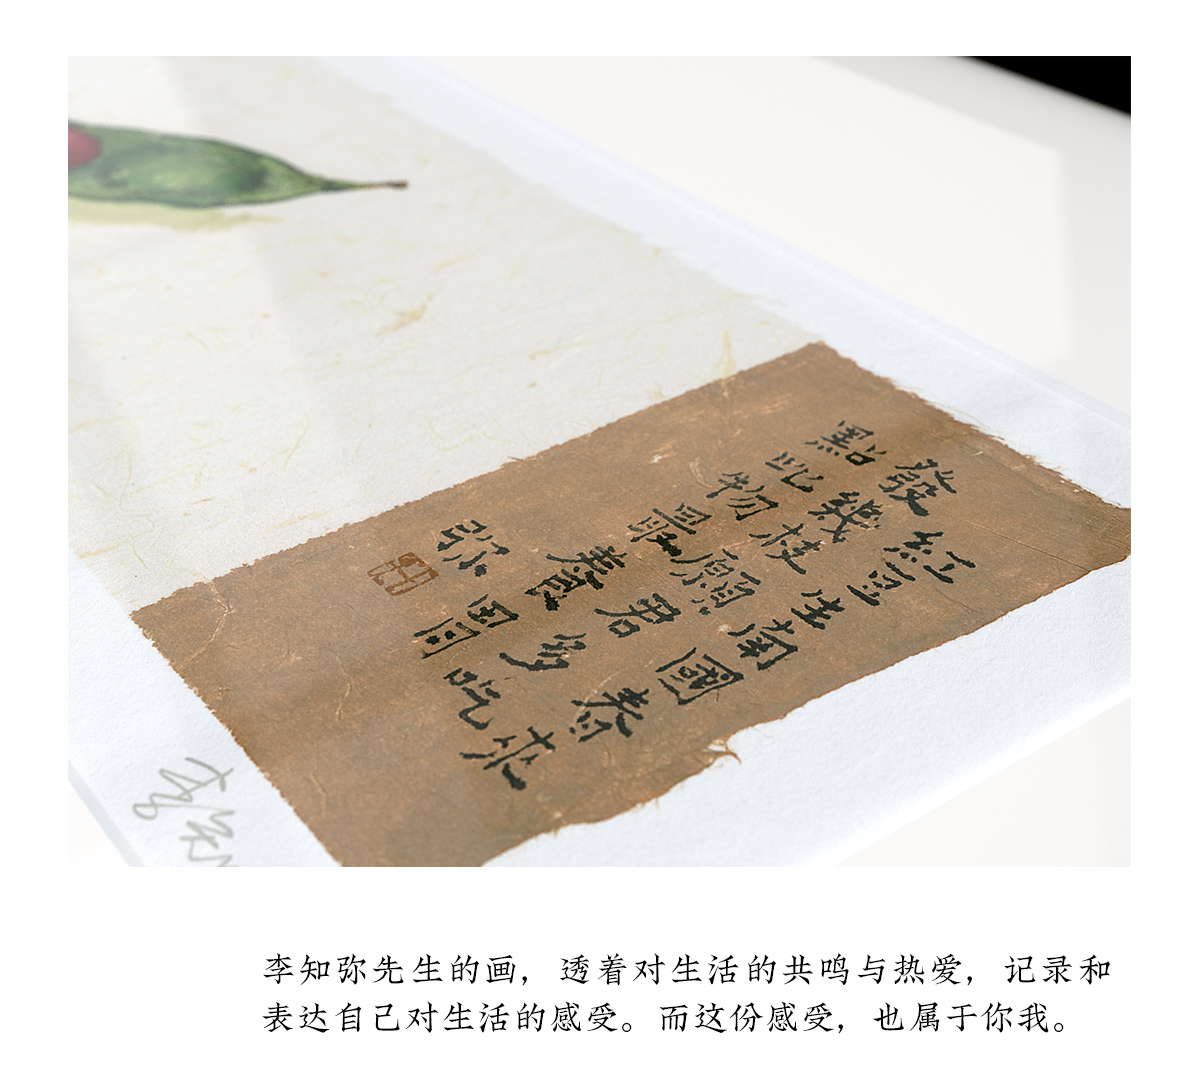 紅豆生南國春來
發幾枝願君多吃
點此物最養胃
弥
李知弥先生的画，透着对生活的共鸣与热爱，记录和
表达自己对生活的感受。而这份感受，也属于你我。